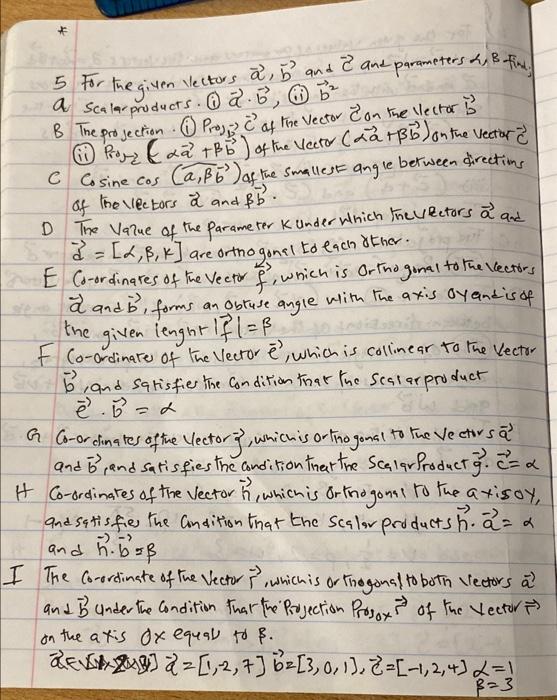 *
5 For the given vectors a⃗, b⃗ and c⃗ and parameters α, β find,
a Scalar products. (i) a⃗ · b⃗, (ii) b⃗²
B The projection. (i) Proj_b⃗ c⃗ of the vector c⃗ on the vector b⃗
(ii) Proj_c⃗ (αa⃗ + βb⃗) of the vector (αa⃗ + βb⃗) on the vector c⃗
C Cosine cos (a⃗, βb⃗) of the smallest angle between directions
of the vectors a⃗ and βb⃗.
D The value of the parameter K under which the vectors a⃗ and
d⃗ = [α, β, K] are orthogonal to each other.
E Co-ordinates of the vector f⃗, which is orthogonal to the vectors
a⃗ and b⃗, forms an obtuse angle with the axis oy and is of
the given lenght |f⃗| = β
F Co-ordinates of the vector e⃗, which is collinear to the vector
b⃗, and satisfies the condition that the scalar product
e⃗ · b⃗ = α
G Co-ordinates of the vector g⃗, which is orthogonal to the vectors a⃗
and b⃗, and satisfies the condition that the scalar product g⃗ · c⃗ = α
H Co-ordinates of the vector h⃗, which is orthogonal to the axis oy,
and satisfies the condition that the scalar products h⃗ · a⃗ = α
and h⃗ · b⃗ = β
I The co-ordinate of the vector r⃗, which is orthogonal to both vectors a⃗
and b⃗ under the condition that the projection Proj_ox r⃗ of the vector r⃗
on the axis ox equal to β.
a⃗ = [1, -2, 7] b⃗ = [3, 0, 1], c⃗ = [-1, 2, 4] α = 1
β = 3